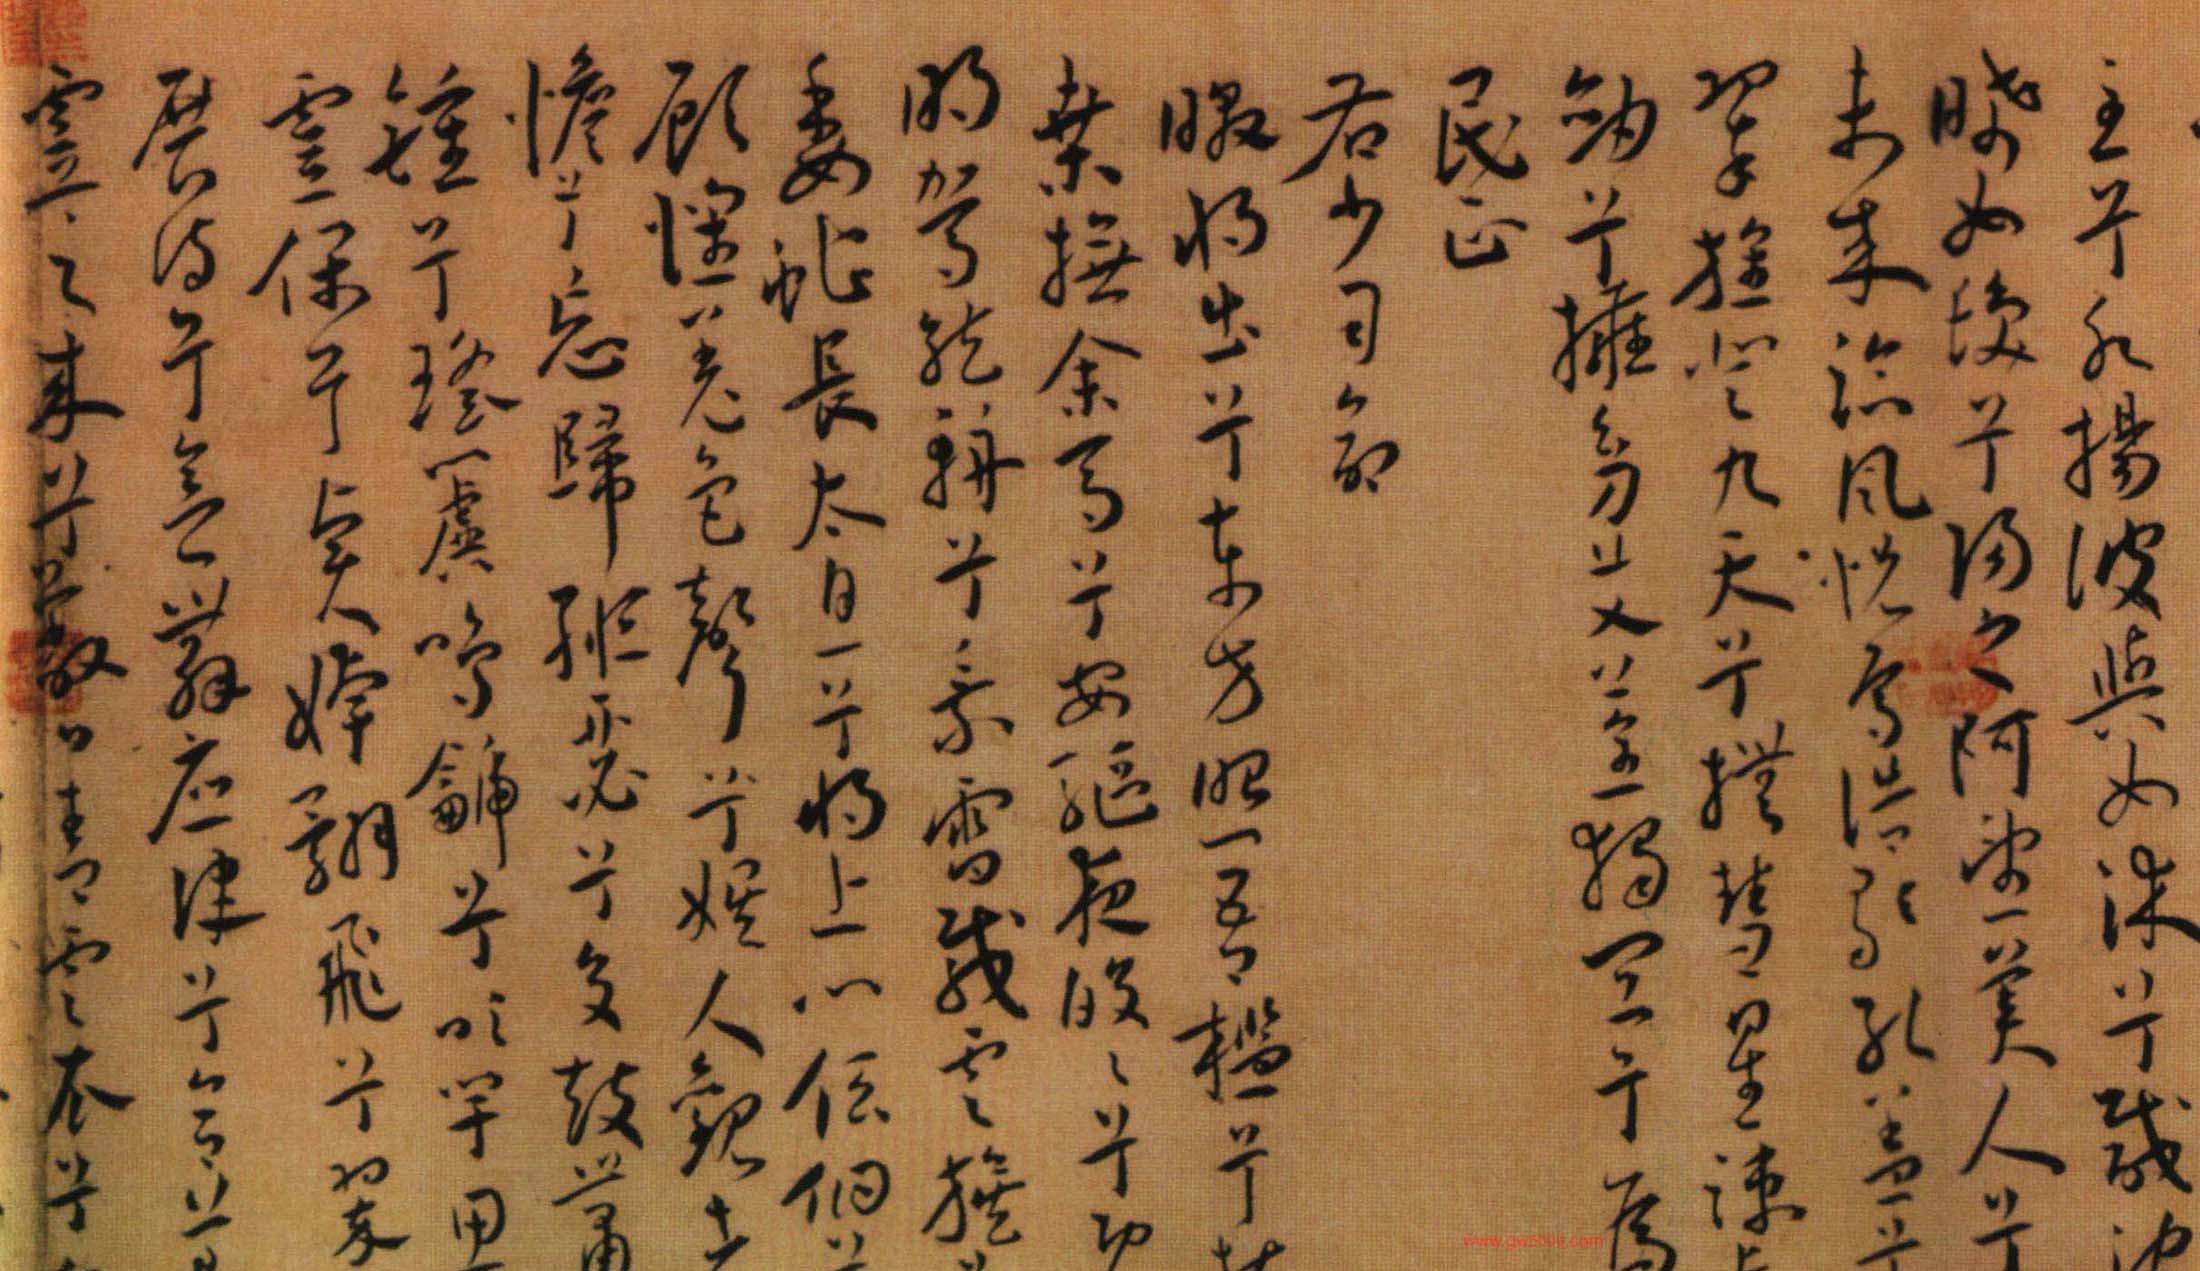 至兮水揚波與女沐兮咸池
晞女髮兮陽之阿望美人兮
未來臨風怳焉浩歌孔蓋兮
翠旌登九天兮撫彗星竦長
劍兮擁幼艾兮荃獨宜兮為
民正
右少司命
暾將出兮東方照吾檻兮扶
桑撫余馬兮安驅夜皎〻兮既
明駕龍輈兮乘雷載雲旗兮
委蛇長太息兮將上心低佪兮
顧懷羌色聲兮娛人觀者
憺兮忘歸緪瑟兮交鼓簫
鍾兮瑤簴鳴鯱兮吹竽思
靈保兮賢姱翾飛兮翠
展詩兮會舞應律兮合節
靈之來兮蔽日青雲衣兮
www.gw5000.com